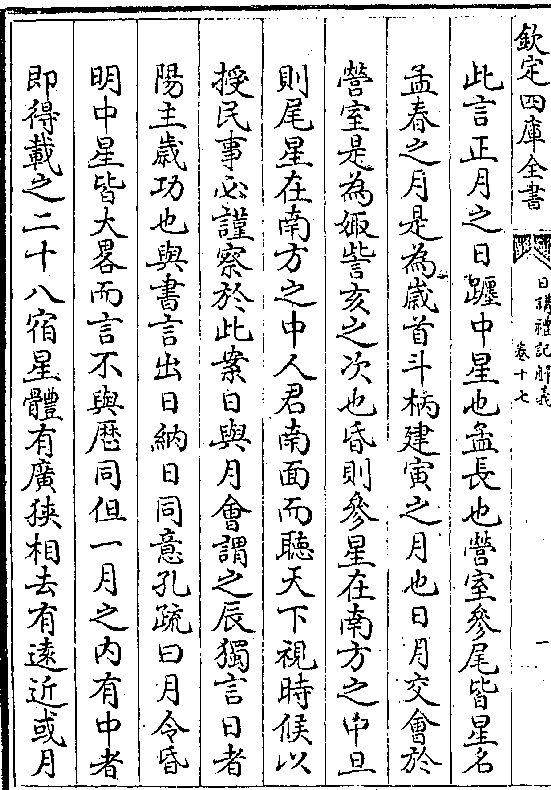 欽定四庫全書
日講禮記解義
卷十七
一
此言正月之日躔中星也孟長也營室參尾皆星名
孟春之月是為歲首斗柄建寅之月也日月交會於
營室是為娵訾亥之次也昏則參星在南方之中旦
則尾星在南方之中人君南面而聽天下視時候以
授民事必謹察於此案日與月會謂之辰獨言日者
陽主歲功也與書言出日納日同意孔疏曰月令昏
明中星皆大畧而言不與厯同但一月之內有中者
即得載之二十八宿星體有廣狹相去有遠近或月